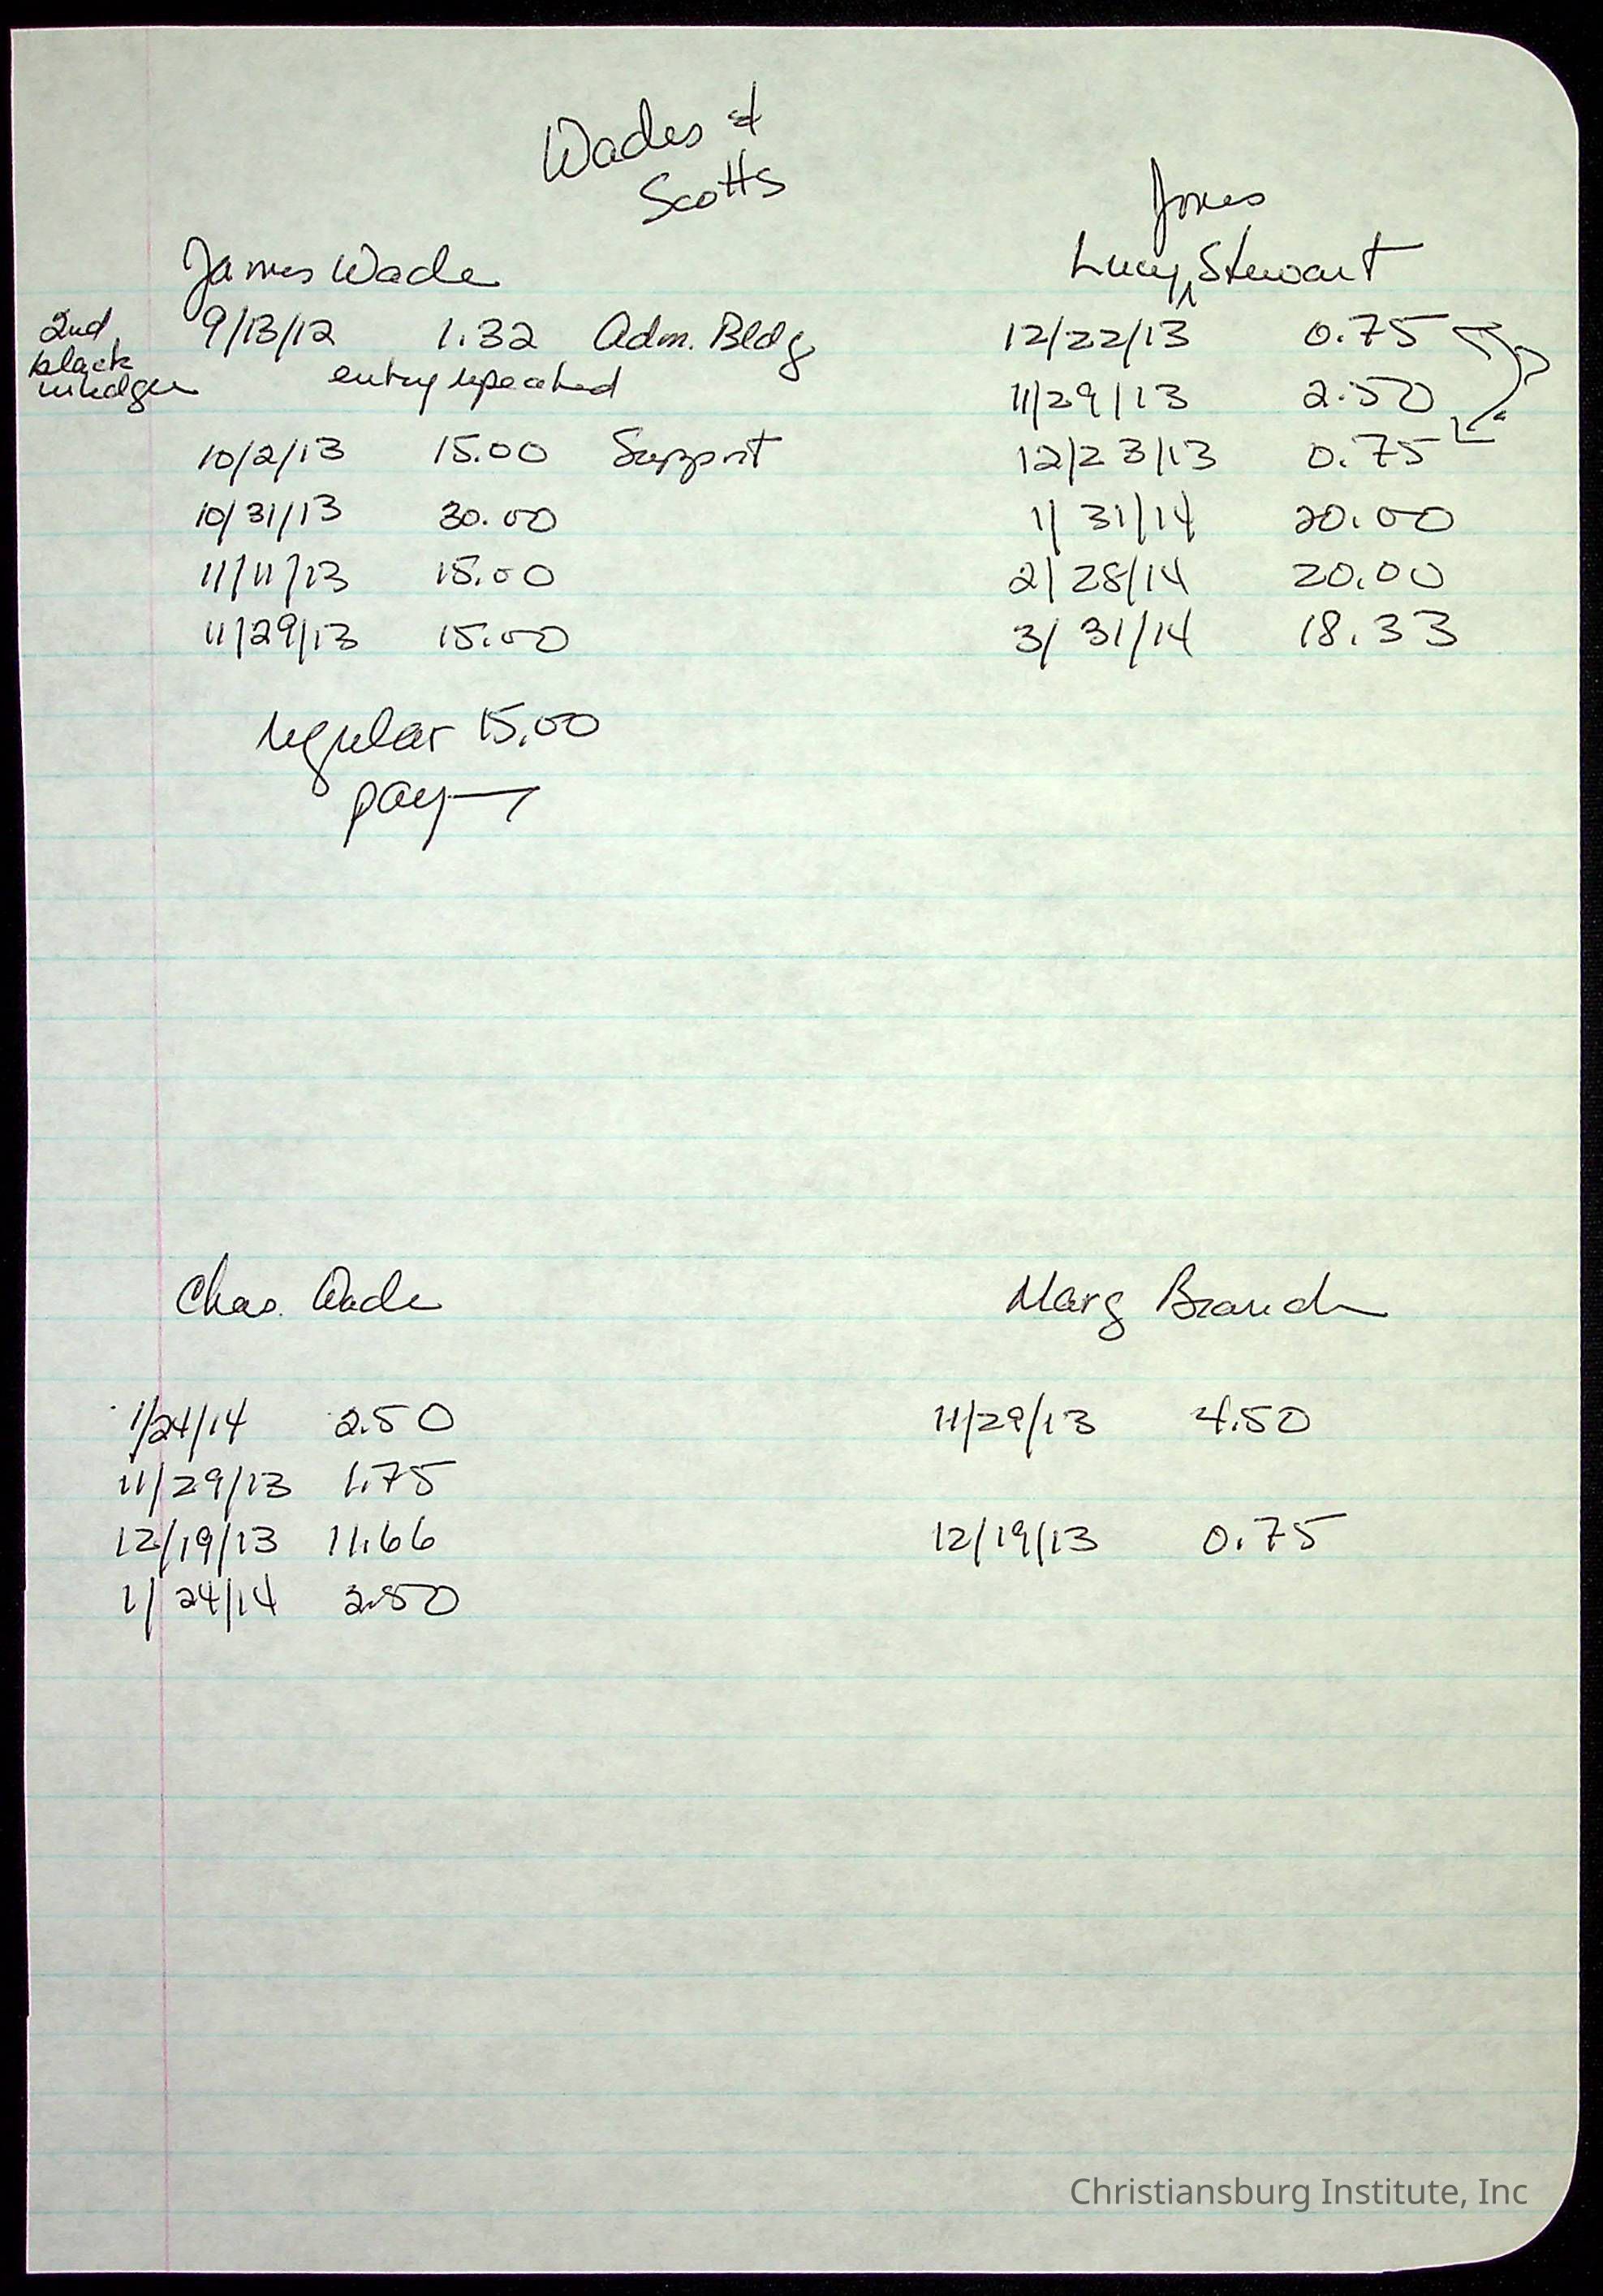 Wades &
Scotts
James Wade
2nd black
9/13/12 1.32 Adm. Bldg
entry repeated
10/2/13 15.00 Support
10/31/13 30.00
11/11/13 15.00
11/29/13 15.00
regular 15.00
pay
Jones
Lucy ^ Stewart
12/22/13 0.75
11/29/13 2.50
12/23/13 0.75
1/31/14 20.00
2/28/14 20.00
3/31/14 18.33
Chas. Wade
1/24/14 2.50
11/29/13 1.75
12/19/13 11.66
1/24/14 2.50
Marg Branch
11/29/13 4.50
12/19/13 0.75
Christiansburg Institute, Inc